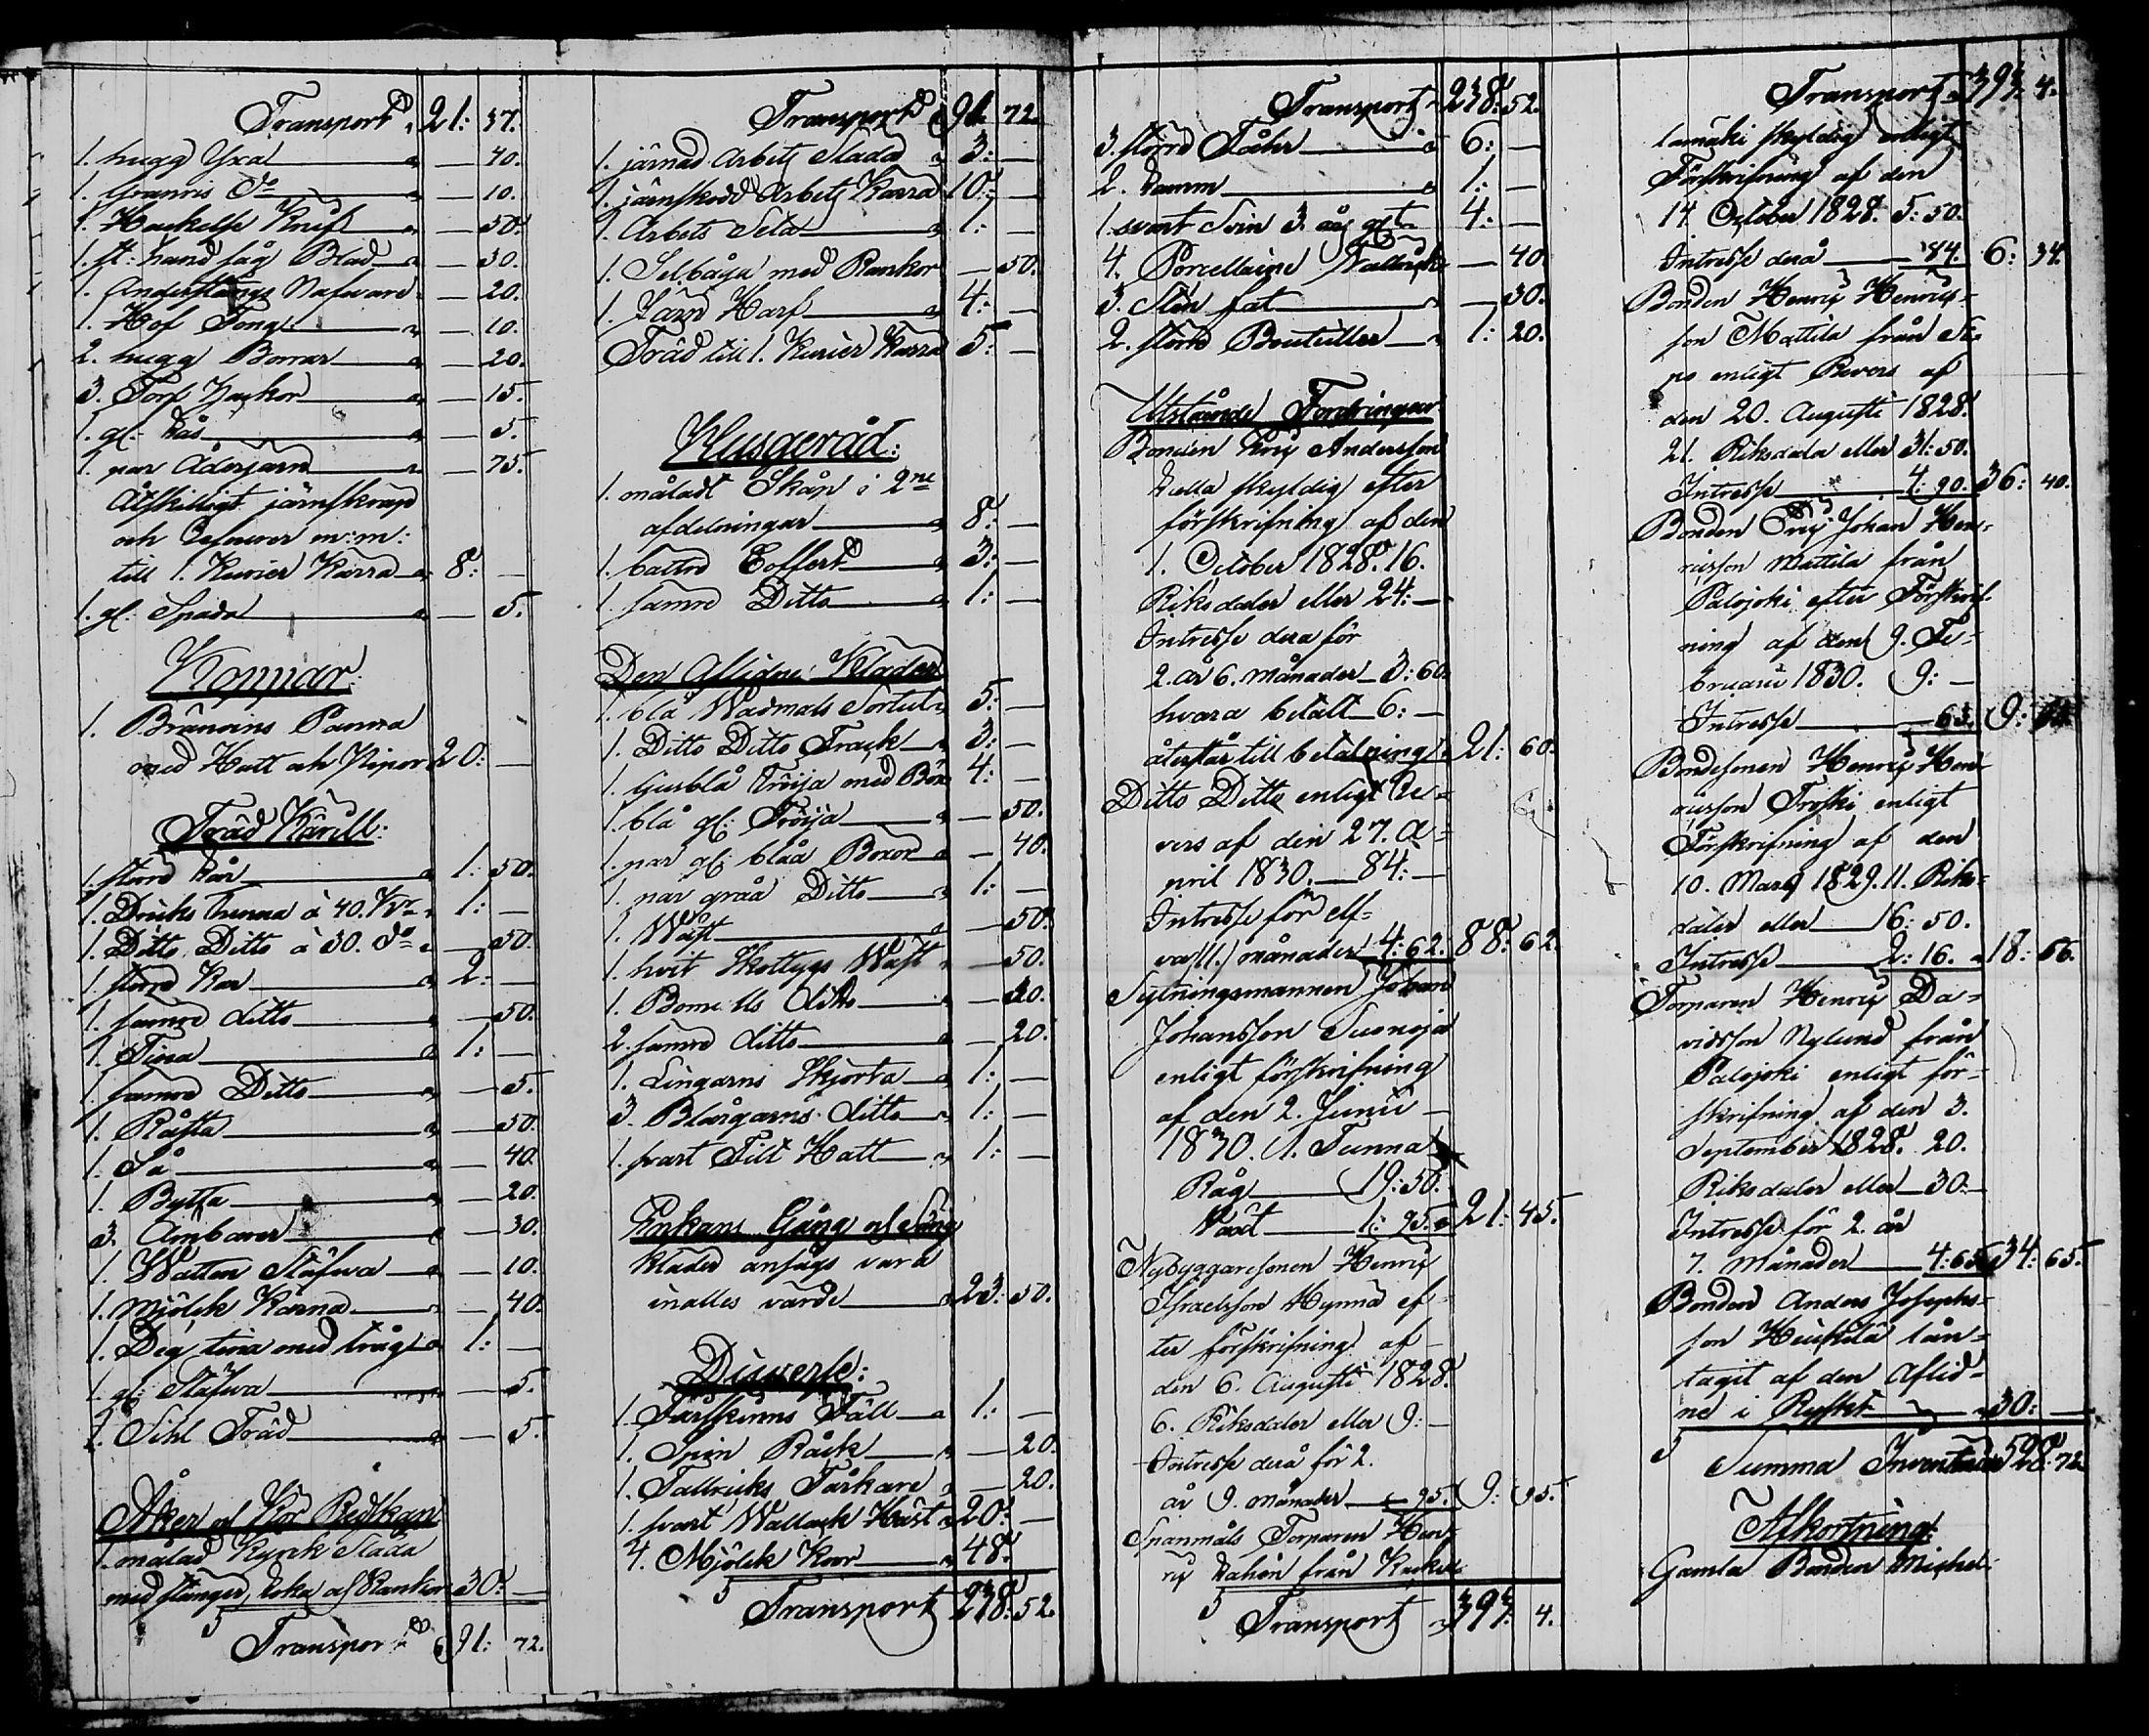 Transport 21: 37.
1. hugg Yxa — 40.
1. Grannis do — 10.
1. Hackelse Knif — 50.
1. st: hand såg Blad — 30.
1. Anderstångs Nafware — 20.
1. Hof Tong — 10.
2. hugg Borrar — 20.
3. Torf Hackor — 15.
1. gl: — 5.
1. par Åderjarn — 75.
Åtskilligt järnskrap
och m:m:
till 1. Kurier Kärra 8: —
1. gl: Spada — 5.
Koppar:
1. Bränvins Panna
med Hatt och Pipor 20: —
Träd Kärill:
1. större kar 1: 50.
1. Dricks tunna à 40. K:r 1: —
1. Ditto Ditto à 30. do — 50.
1. större Kar 2: —
1. samre ditto — 50.
1. Tina 1: —
1. samre Ditto — 5.
1. — 50.
1. Så — 40.
1. Bytta — 20.
3. Ämbarer — 30.
1. Watten Stäfwa — 10.
1. Mjölck Kärna — 40.
1. Deg tina med tråg 1: —
1. gl: Stäfwa — 5.
1. Sihl Träd — 5.
Åker och Kör Redskap
1. målad Kyrck Släda
med stänger, och Rankor 30: —
Transport 91: 72.
Transport 91: 72.
1. järnad Arbets Släda 3: —
1. järnskodd Arbets Kärra 10: —
1. Arbets Sela 1: —
1. Selbåga med Rankor — 50.
1. Harf 4: —
Träd till 1. Kurier Kärra 5: —
Husgeråd:
1. måladt Skåp i 2ne
afdelningar 8: —
1. battre Coffert 3: —
1. samre Ditto 1: —
Den Aflidnes Kläder
1. blå Wadmals Sortut 5: —
1. Ditto Ditto Frack 3: —
1. ljusblå tröija med Böx 4: —
1. blå gl: Tröija — 50.
1. par gl: blåa Boxor — 40.
1. par gråa Ditto 1: —
1. Wäst — 50.
1. hvit Wäst — 50.
1. Bomulls ditto — 20.
2. samre ditto — 20.
1. Lingarns Skjorta 1: —
3. Blångarns ditto 1: —
1. svart Filt Hatt 1: —
Enkans Gång och Säng
kläder ansågs vara
inalles värde 23: 50.
Diverse:
1. Fårskinns Fäll 1: —
1. Spin Råck — 20.
1. Tallricks Tårkare — 20.
1. svart Wallack Häst 20: —
4. Mjölck Koor 48. —
Transport 238: 52.
Transport 238: 52.
3. större Fåhr 6: —
2. Lamm 1: —
1. svart Svin 3. års glt 4: —
4. Porcellaine Tallrick — 40.
3. Sten fat — 30.
2. större Bouteiller 1: 20.
Utstående Fordringar
Bonden Eric Andersson
skyldig efter
förskrifning af den
1. October 1828. 16.
Riksdaler eller 24: —
Intresse dera för
2. år 6. månader 3: 60
hvara betalt 6: —
återstår till betalning 21: 60.
Ditto Ditto enligt Re=
vers af den 27. A=
pril 1830. 84: —
Intresse för elf=
va (11.) månader 4: 62. 88: 62.
Sytningsmannen Johan
Johansson Suonoja
enligt förskrifning
af den 2. Junii
1830. 1. Tunna
Råg 19: 50.
1: 95. 21: 45.
Nybyggaresonen Henric
Israelsson Hynnä ef=
ter förskrifning af
den 6. Augusti 1828.
6. Riksdaler eller 9: —
Intresse derå för 2.
år 9. månader 95. 9: 95.
Spanmåls Torparen Hen=
ric från
Transport 393: 4.
Transport 393: 4.
lamäki skyldig enligt
Förskrifning af den
14 October 1828. 5: 50.
Intresse derå 84. 6: 34.
Bonden Henric Henrics=
son Mattila från
po enligt Revers af
den 20. Augusti 1828.
21. Riksdaler eller 31: 50.
Intresse 4: 90. 36: 40.
Bonden Johan Hen=
ricsson Mattila från
Palojoki efter Förskrif=
ning af den 9. Fe=
bruarii 1830. 9: —
Intresse 63. 9:
Bondesonen Henric Hen=
ricsson Troski enligt
Förskrifning af den
10. Mars 1829. 11. Riks=
daler eller 16: 50.
Intresse 2: 16. 18: 66.
Torparen Henric Da=
vidsson Nylund från
Palojoki enligt för=
skrifning af den 3.
September 1828. 20.
Riksdaler eller 30: —
Intresse för 2. år
7. Månader 4: 65. 34: 65.
Bonden Anders Josephs=
son Heickilä lån=
tagit af den Aflid=
ne i Ryskt 30: —
Summa Inventarium 528: 72.
Afkortning:
Gamla Bonden Michel